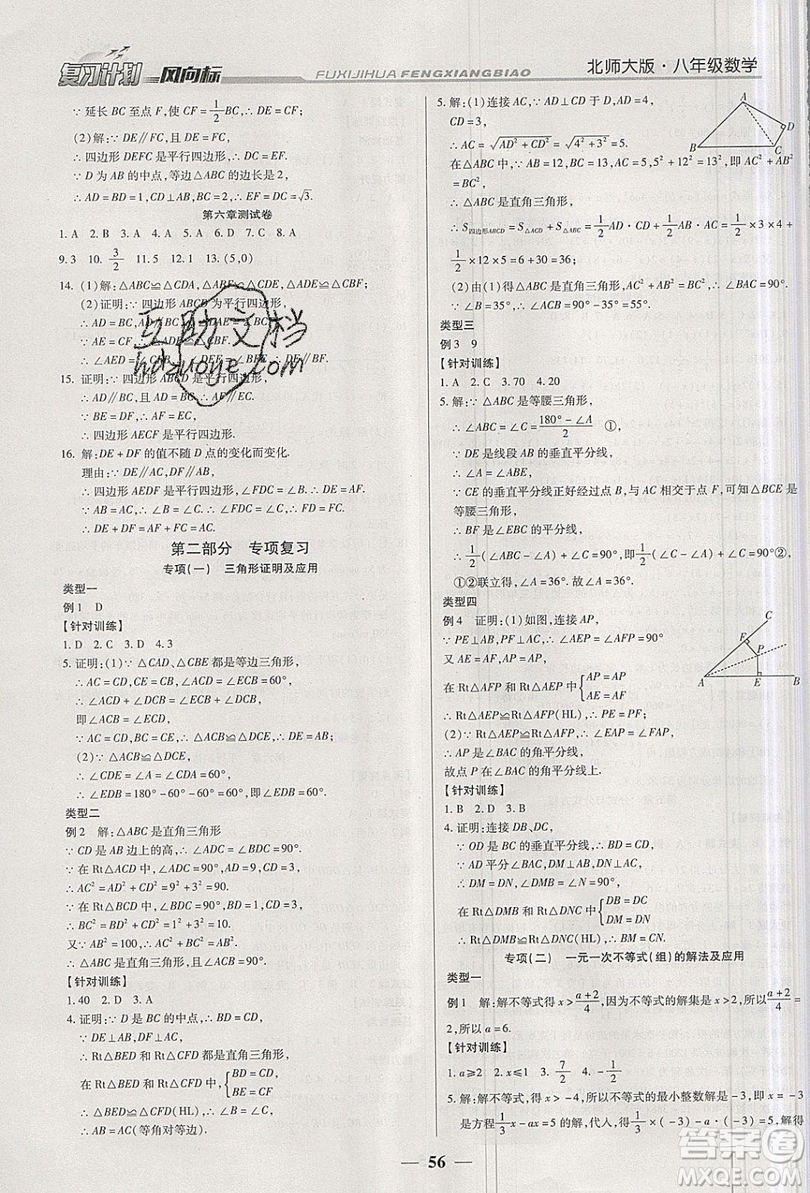 复习计划 风向标
FUXIJIHUA FENGXIANGBIAO
北师大版·八年级数学
∵ 延长 BC 至点 F,使 CF=1/2 BC,
∴ DE∥FC, DE=FC;
(2)解:∵ DE∥FC, DE=FC,
∴ 四边形 DEFC 是平行四边形, ∴ DC=EF,
∵ D 为 AB 的中点,等边△ABC 的边长是 2,
∴ AD=BD=1, CD⊥AB, BC=2, ∴ DC=EF=√3.
第六章测试卷
1. A 2. B 3. A 4. D 5. D 6. D 7. C 8. A
9. 3 10. 3/2 11. 5 12. 1 13. (5,0)
14. (1)解: △ABC≌△CDA, △ABF≌△CDE, △ADE≌△CBF;
(2)证明:∵ 四边形 ABCD 为平行四边形,
∴ AD=BC,
∴ AE=CF,
∴ ∠AED
15. 证明:∵ 四边形 ABCD 是平行四边形,
∴ AD∥BC, AD=BC,
∵ BE=DF, ∴ AF=EC,
∴ 四边形 AECF 是平行四边形.
16. 解: DE+DF 的值不随 D 点的变化而变化.
理由:∵ DE∥AF, DF∥AE,
∴ 四边形 AEDF 是平行四边形, ∠FDC=∠B.
∴ DE=AF. ∵ ∠B=∠C, ∴ ∠FDC=∠C,
∴ DF=FC, ∴ DE+DF=AC.
第二部分 专项复习
专项(一) 三角形证明及应用
类型一
例 1 D
【针对训练】
1. D 2. C 3. D 4. 3
5. 证明:(1)∵ △ACD, △CBE 都是等边三角形,
∴ AC=CD, CE=CB, ∠ACD=∠ECB=60°,
∴ ∠ACD+∠DCB=∠ECB+∠DCB,
即 ∠ACE=∠DCB,
∵ AC=CD, EC=CB, ∴ △ACE≌△DCB;
(2)∵ △ACB≌△DCE,
∴ ∠CDE=∠CAB=60°=∠DCA,
∴ DE∥AB.
类型二
例 2 解: △ABC 是直角三角形
∵ CD 是 AB 上的高, ∴ ∠ADC=∠BDC=90°.
∵ 在 Rt△ACD 中, ∠ADC=90°, CD=3, AD=9,
∴ AC²=AD²+CD²=9²+3²=90.
∵ 在 Rt△BCD 中, ∠BDC=90°, CD=3, BD=1,
∴ BC²=BD²+CD²=1²+3²=10,
∵ AB²=100, ∴ AC²+BC²=AB²,
∴ △ABC 是直角三角形.
【针对训练】
1. 40 2. D 3. D
4. 证明:∵ D 是 BC 的中点, ∴ BD=CD.
∵ DE⊥AB, DF⊥AC,
∴ △BED 和 △CFD 都是直角三角形,
在 Rt△BED 和 Rt△CFD 中 {BD=CD
BE=CF
∴ Rt△BED≌Rt△CFD(HL), ∴ ∠B=∠C,
∴ AB=AC(等角对等边).
5. 解:(1)连接 AC,∵ AD⊥CD 于 D, AD=4,
CD=3,
∴ AC=√AD²+CD²=√4²+3²=5.
在△ABC 中,∵ AB=13, BC=12,即 AC²+AB²
=BC²,
∴ △ABC 是直角三角形,
∴ S四边形ABCD=S△ACD+S△ABC=1/2 AD·CD+1/2×3×4+
1/2×12×5=6+30=36;
(2)由(1)得 △ABC 是直角三角形, ∴ ∠BAC=90°.
∵ ∠B=35°, ∴ ∠ACB=90°-35°=55°.
类型三
例 3 9
【针对训练】
1. A 2. C 3. 70 4. 20
5. 解:∵ △ABC 是等腰三角形,
∴ ∠ABC=∠C=180°-∠A/2 ①,
∵ DE 是线段 AB 的垂直平分线,
∴ ∠A=∠ABE,
∵ CE 的垂直平分线正好经过点 B,与 AC 相交于点 F,可知 △BCE 是
等腰三角形,
∴ BF 是∠EBC 的平分线,
∴ 1/2(∠ABC-∠A)+∠C=90° ②,
①②联立得, ∠A=36°. 故 ∠A=36°.
类型四
例 4 证明:(1)如图,连接 AP,
∵ PE⊥AB, PF⊥AC,
∴ ∠AEP=∠AFP=90°
又 AE=AF,
∴ 在 Rt△AEP 和 Rt△AFP 中 {AP=AP
AE=AF
∴ Rt△AEP≌Rt△AFP(HL), ∴ PE=PF.
(2)∵ Rt△AEP≌Rt△AFP, ∴ ∠EAP=∠FAP,
∴ AP 是∠BAC 的角平分线,
故点 P 在∠BAC 的角平分线上.
【针对训练】
1. B 2. D 3. B
4. 证明:连接 DB、DC,
∵ OD 是 BC 的垂直平分线, ∴ DB=DC,
∵ AD 平分∠BAC, DM⊥AB, DN⊥AC,
∴ DM=DN, ∠DMB=∠DNC=90°,
∵ 在 Rt△DMB 和 Rt△DNC 中 {DB=DC
DM=DN
∴ Rt△DMB≌Rt△DNC(HL), ∴ BM=CN.
专项(二) 一元一次不等式(组)的解法及应用
类型一
例 1 解:解不等式得 x>a+2/4,因为不等式的解集是 x>2,所以 a+2/4=
2,所以 a=6.
【针对训练】
1. a≥2 2. x≤1 3. 7/2 4. -1
5. 解:解不等式得 x>-4,所以不等式的最小整数解是 -3,所以 x=-3
是方程 1/3 x-ax=5 的解,代入,得 1/3×(-3)-a·(-3)=5,解得
56
互助文档
hdzuoye.com
答案圈
MXQE.COM